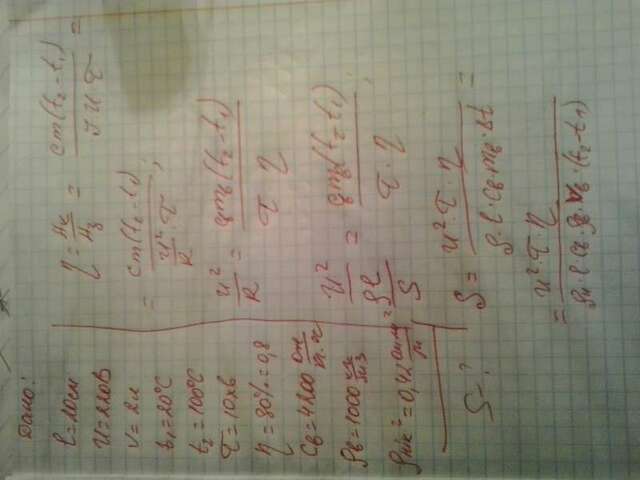 Дано:
l=10см
U=220В
V=2л
t₁=20°C
t₂=100°C
τ=10хв
η=80%=0,8
Cв=4200
ρв=1000 кг/м3
ρнік=0,42
S-?
η = Aк/Aз = cm(t₂-t₁)/IUτ =
= cm(t₂-t₁)/(U²/R · τ);
U²/R = cmв(t₂-t₁)/τ η
U²/(ρl/S) = cmв(t₂-t₁)/τ·η;
S = U²·τ·η/ρ·l·Cв·mв·Δt =
= U²·τ·η/ρн·l·Cв·ρв·Vв·(t₂-t₁)